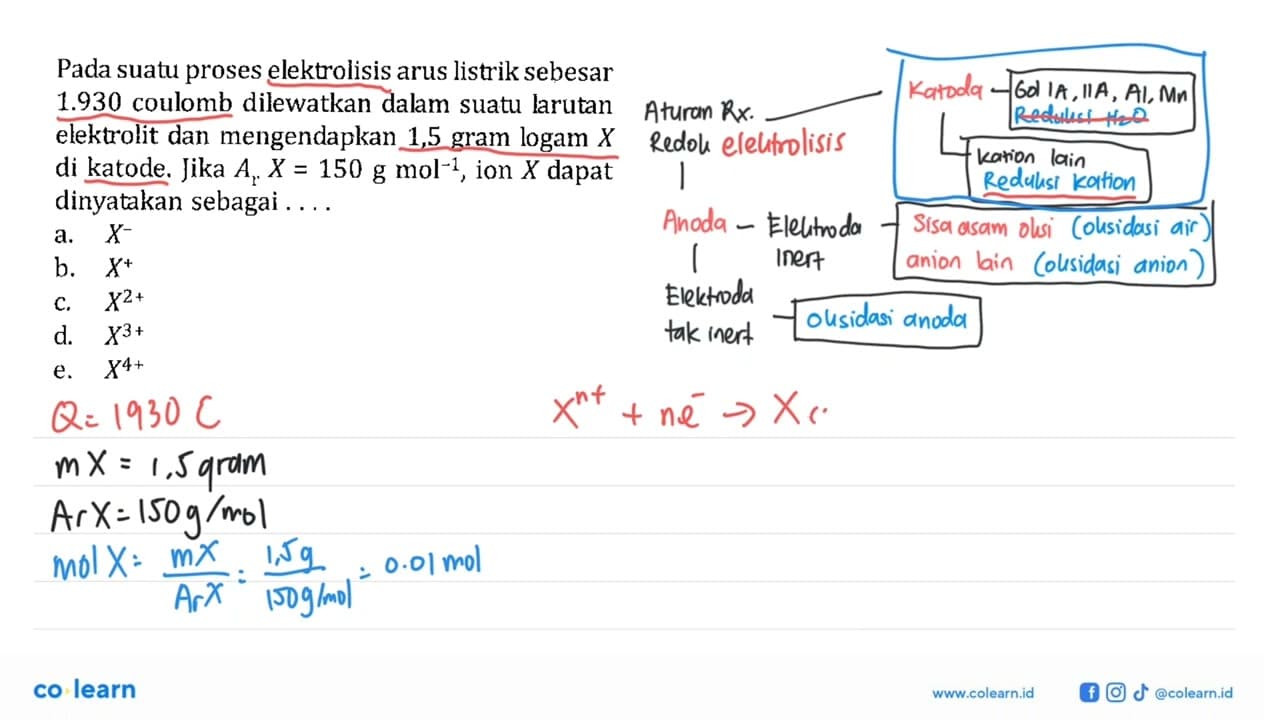 Pada suatu proses elektrolisis arus listrik sebesar
1.930 coulomb dilewatkan dalam suatu larutan
elektrolit dan mengendapkan 1,5 gram logam X
di katode. Jika Aᵣ X = 150 g mol⁻¹, ion X dapat
dinyatakan sebagai . . . .
a. X⁻
b. X⁺
c. X²⁺
d. X³⁺
e. X⁴⁺
Aturan Rx.
Redoks elektrolisis
Katoda – Gol IA, IIA, Al, Mn
Reduksi H₂O
kation lain
Reduksi kation
Anoda – Elektroda
inert
Sisa asam oksi (oksidasi air)
anion lain (oksidasi anion)
Elektroda
tak inert
Oksidasi anoda
Q = 1930 C
Xⁿ⁺ + ne⁻ → X
mX = 1,5 gram
ArX = 150 g/mol
mol X = mX / ArX = 1,5 g / 150 g/mol = 0.01 mol
co learn
www.colearn.id
@colearn.id